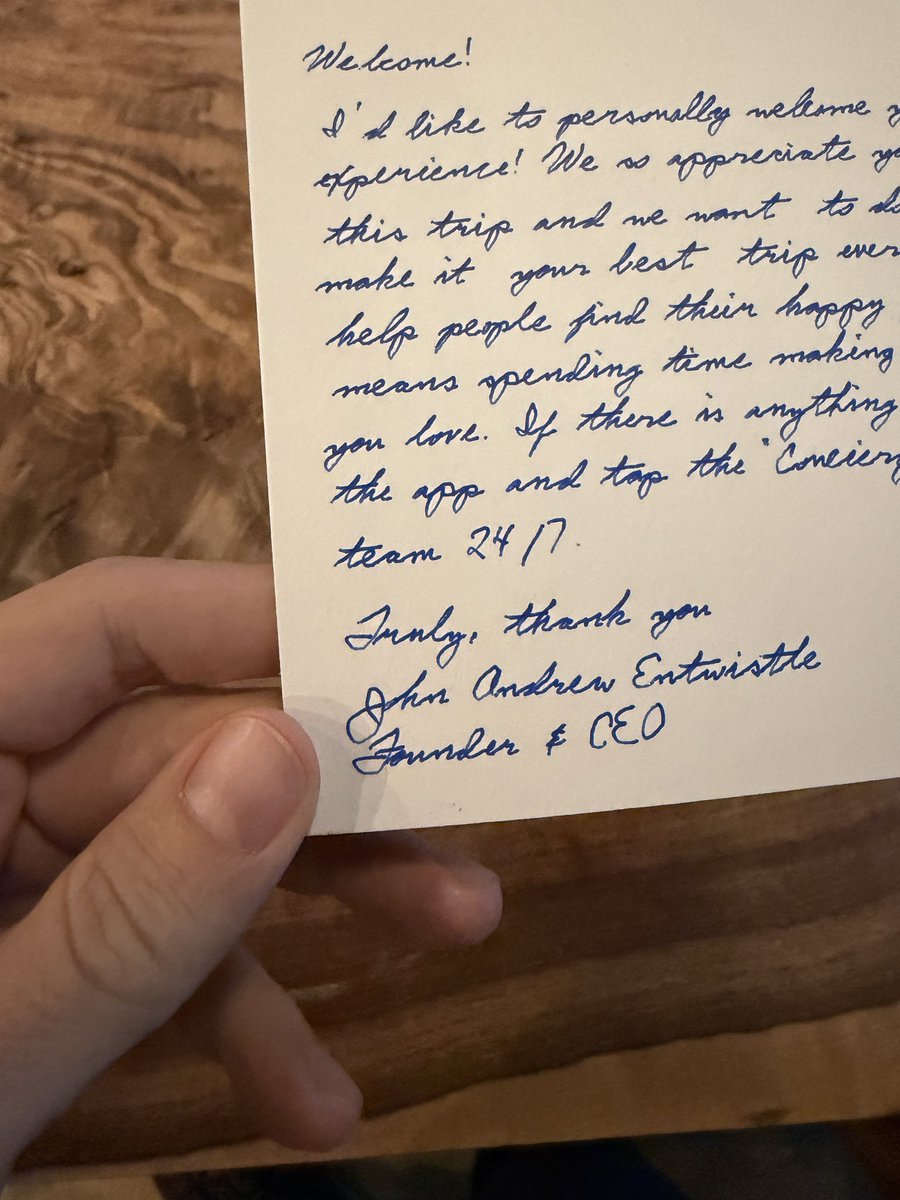 Welcome!
I'd like to personally welcome
experience! We so appreciate
this trip and we want to
make it your best trip ever
help people find their happy
means spending time making
you love. If there is anything
the app and tap the "
team 24/7.
Truly, thank you
John Andrew Entwistle
Founder & CEO